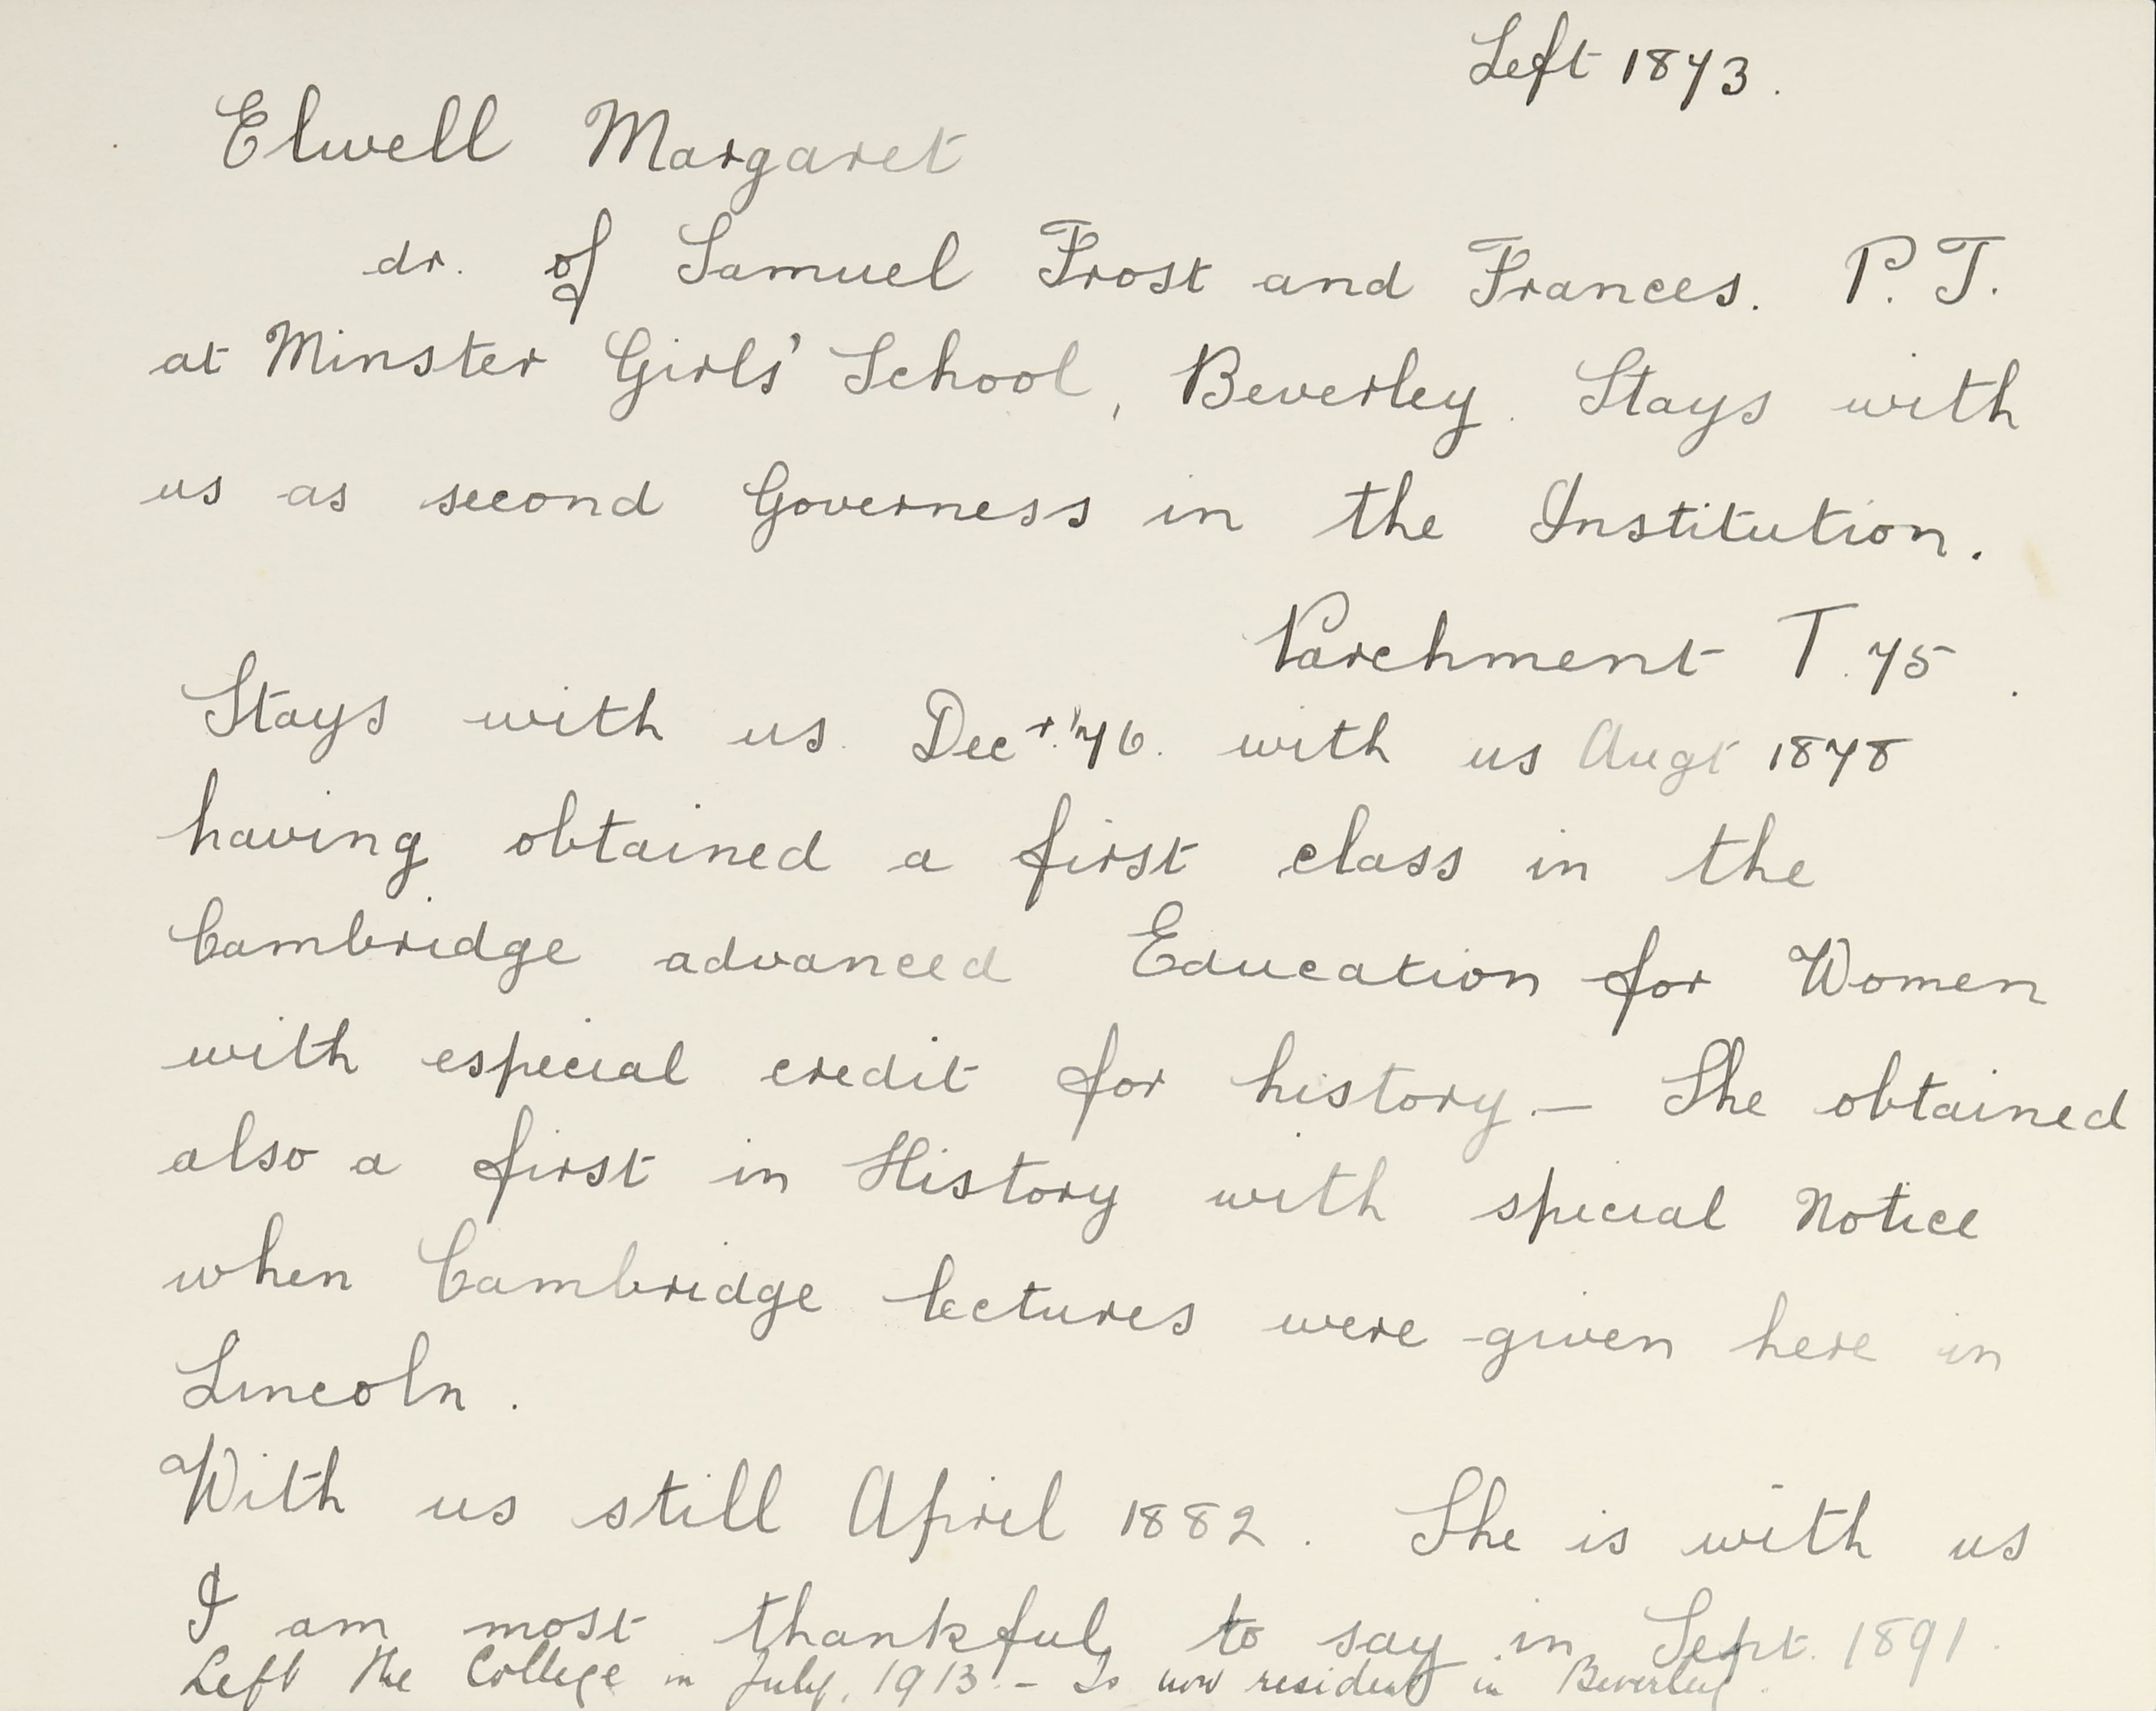 Left 1873.
Elwell Margaret
dr. of Samuel Frost and Frances. P. T.
at Minster Girls' School, Beverley. Stays with
us as second Governess in the Institution.
Parchment T. 75.
Stays with us. Decr. '76. with us Augt 1878
having obtained a first class in the
Cambridge advanced Education for Women
with especial credit for history. — She obtained
also a first in History with special Notice
when Cambridge lectures were given here in
Lincoln.
With us still April 1882. She is with us
I am most thankful, to say in Sept. 1891.
Left the College in July, 1913 - Is now resident in Beverley.